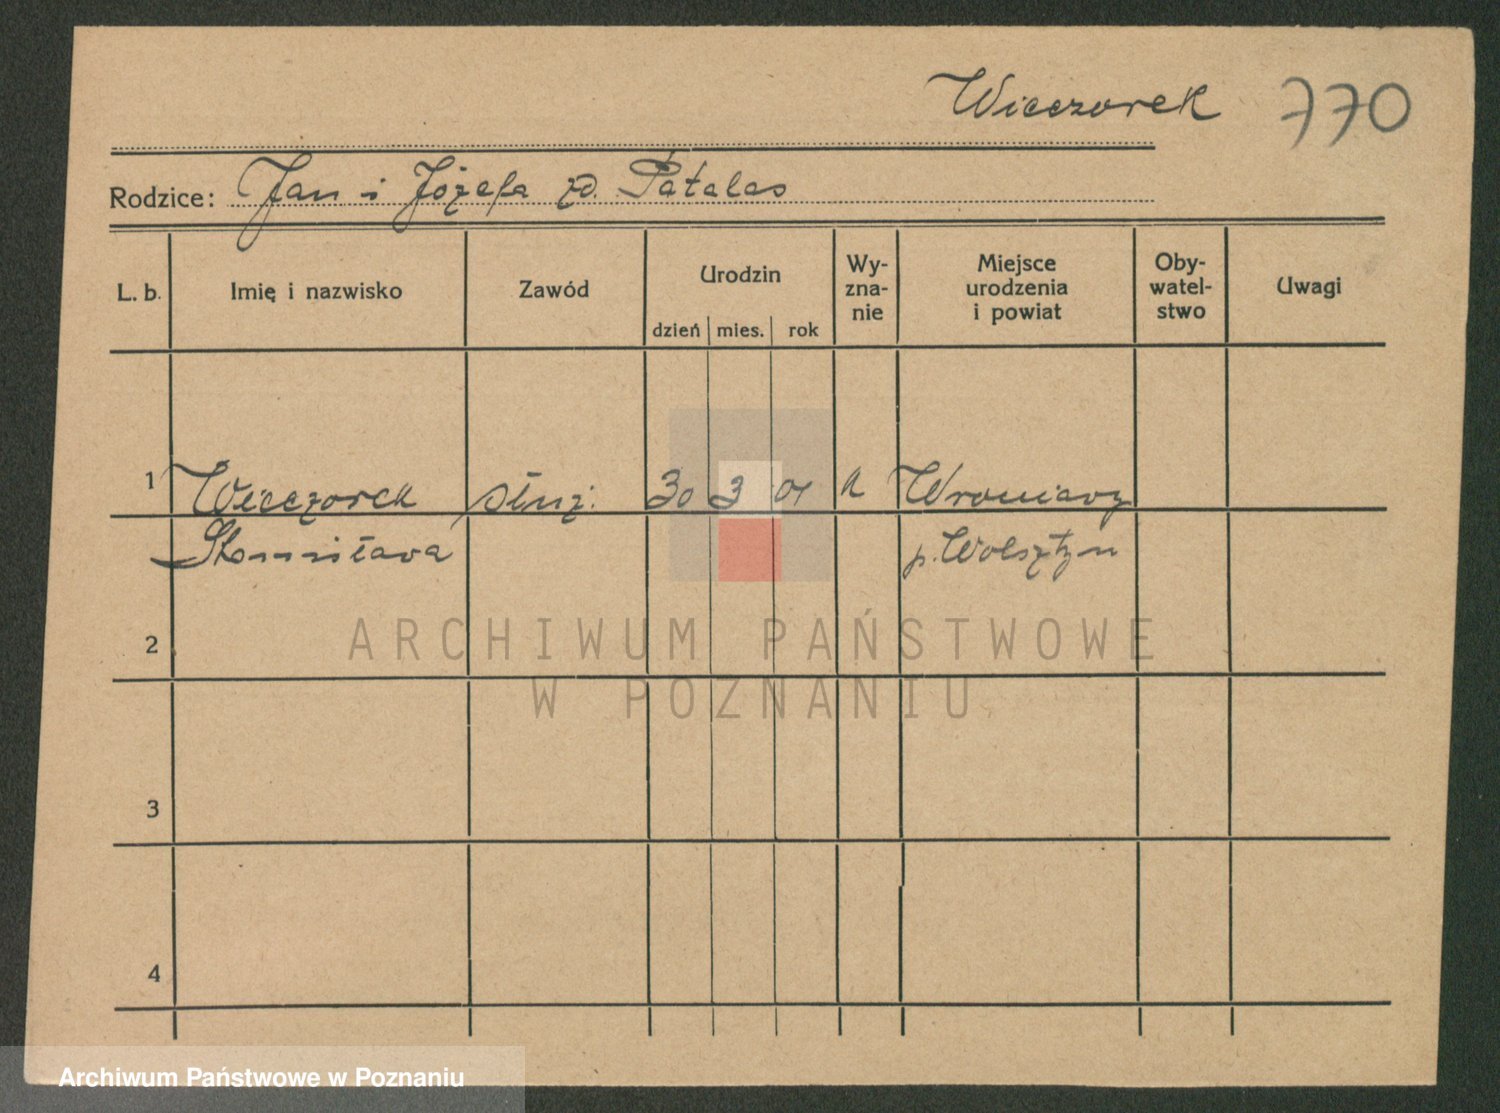 Wieczorek 770
Rodzice: Jan i Józefa zd. Patalas
L. b. Imię i nazwisko Zawód Urodzin Wy-zna-nie Miejsce urodzenia i powiat Oby-watel-stwo Uwagi
dzień mies. rok
1 Wieczorek służ. 30 3 01 k Wroniawy
Stanisława p. Wolsztyn
2
3
4
ARCHIWUM PAŃSTWOWE
W POZNANIU
Archiwum Państwowe w Poznaniu